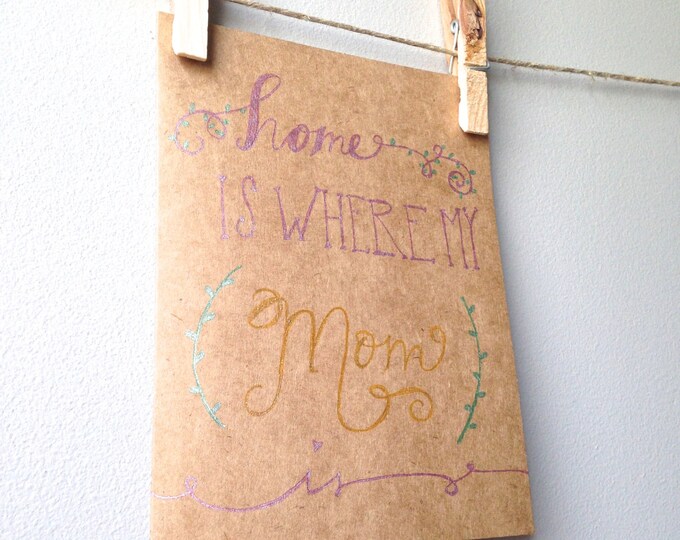 home
IS WHERE MY
Mom
is